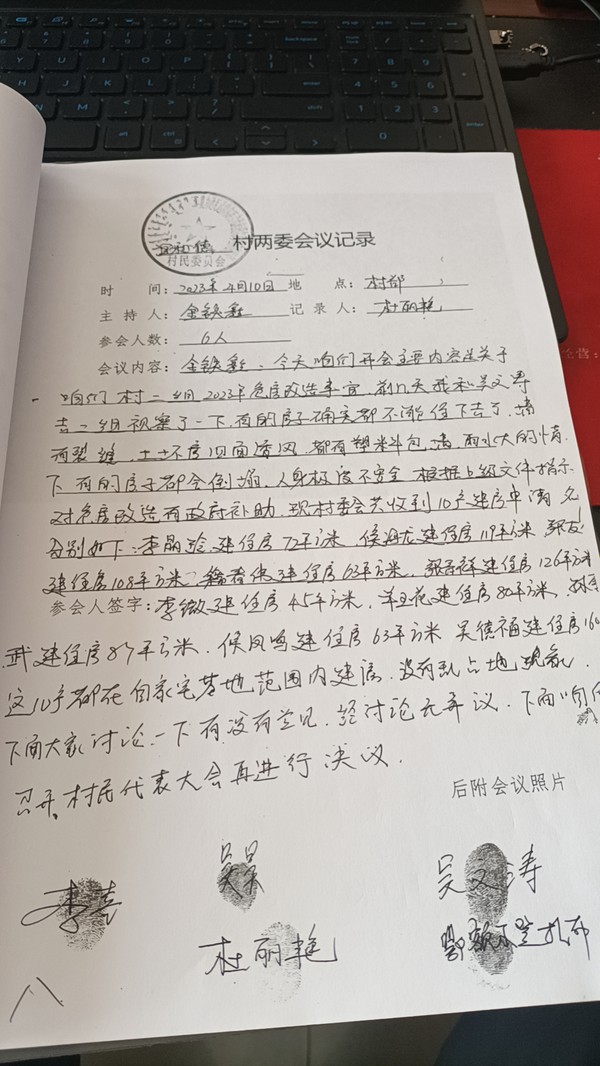 村民委员会
村两委会议记录
时 间：2023年4月10日 地 点：村部
主 持 人：金铁鑫 记 录 人：杜丽艳
参会人数：6人
会议内容：金铁鑫：今天咱们开会主要内容是关于
咱们村一组2023年危房改造事宜，前几天我和吴文涛
去一组视察了一下，有的房子确实都不能住下去了，墙
面裂缝，土坯房四面透风，都有塑料包墙，雨水大的情
下有的房子都会倒塌，人身极度不安全 根据上级文件指示
对危房改造有政府补助，现村委会共收到10户建房申请 名
分别如下：李晶玲建住房72平方米 侯 龙建住房 平方米
建住房108平方米 建住房63平方米， 祥建住房126平方米
参会人签字：李微建住房45平方米， 花建住房80平方米，
武建住房87平方米，侯凤鸣建住房63平方米 吴德福建住房160
这10户都在自家宅基地范围内建房，没有乱占地现象，
下面大家讨论一下有没有意见，经讨论无异议，下面咱们
召开村民代表大会再进行决议．
后附会议照片
李喜 吴昊 吴文涛
杜丽艳